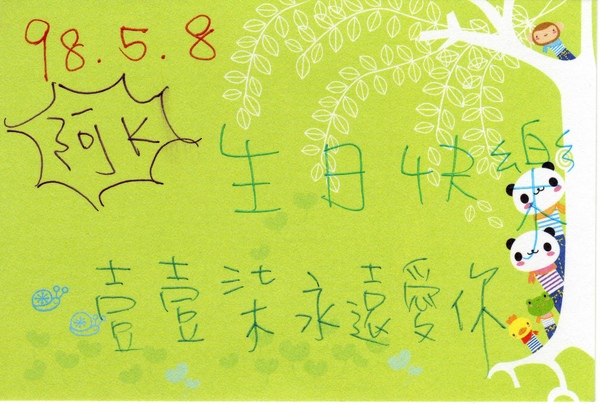 98.5.8
阿K
生日快樂
壹壹柒永遠愛你